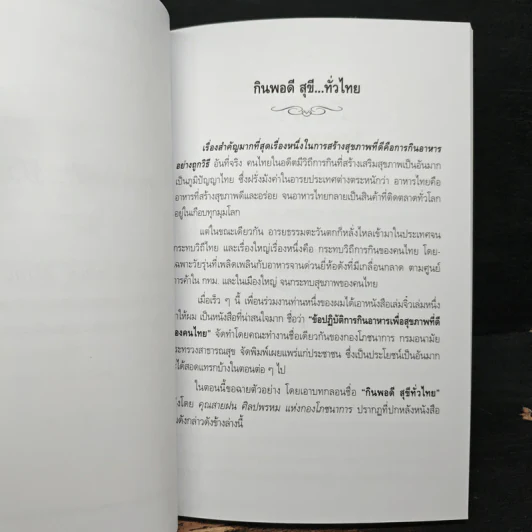 กินพอดี สุขี...ทั่วไทย
เรื่องสำคัญมากที่สุดเรื่องหนึ่งในการสร้างสุขภาพที่ดีคือการกินอาหาร
อย่างถูกวิธี อันที่จริง คนไทยในอดีตมีวิถีการกินที่สร้างเสริมสุขภาพเป็นอันมาก
เป็นภูมิปัญญาไทย ซึ่งฝรั่งมังค่าในอารยประเทศต่างตระหนักว่า อาหารไทยคือ
อาหารที่สร้างสุขภาพที่ดีและอร่อย จนอาหารไทยกลายเป็นสินค้าที่ติดตลาดทั่วโลก
อยู่ในเกือบทุกมุมโลก
แต่ในขณะเดียวกัน อารยธรรมตะวันตกก็หลั่งไหลเข้ามาในประเทศจน
กระทบวิถีไทย และเรื่องใหญ่เรื่องหนึ่งคือ กระทบวิถีการกินของคนไทย โดย-
เฉพาะวัยรุ่นที่เพลิดเพลินกับอาหารจานด่วนยี่ห้อดังที่มีเกลื่อนกลาด ตามศูนย์
การค้าใน กทม. และในเมืองใหญ่ จนกระทบสุขภาพของคนไทย
เมื่อเร็ว ๆ นี้ เพื่อนร่วมงานท่านหนึ่งของผมได้เอาหนังสือเล่มจิ๋วเล่มหนึ่ง
มาให้ผม เป็นหนังสือที่น่าสนใจมาก ชื่อว่า "ข้อปฏิบัติการกินอาหารเพื่อสุขภาพที่ดี
ของคนไทย" จัดทำโดยคณะทำงานชื่อเดียวกันของกองโภชนาการ กรมอนามัย
กระทรวงสาธารณสุข จัดพิมพ์เผยแพร่แก่ประชาชน ซึ่งเป็นประโยชน์เป็นอันมาก
ได้สอดแทรกบ้างในตอนต่อ ๆ ไป
ในตอนนี้ขอฉายตัวอย่าง โดยเอาบทกลอนชื่อ "กินพอดี สุขีทั่วไทย"
โดย คุณสายฝน ศิลปพรหม แห่งกองโภชนาการ ปรากฏที่ปกหลังหนังสือ
ดังกล่าวดังข้างล่างนี้